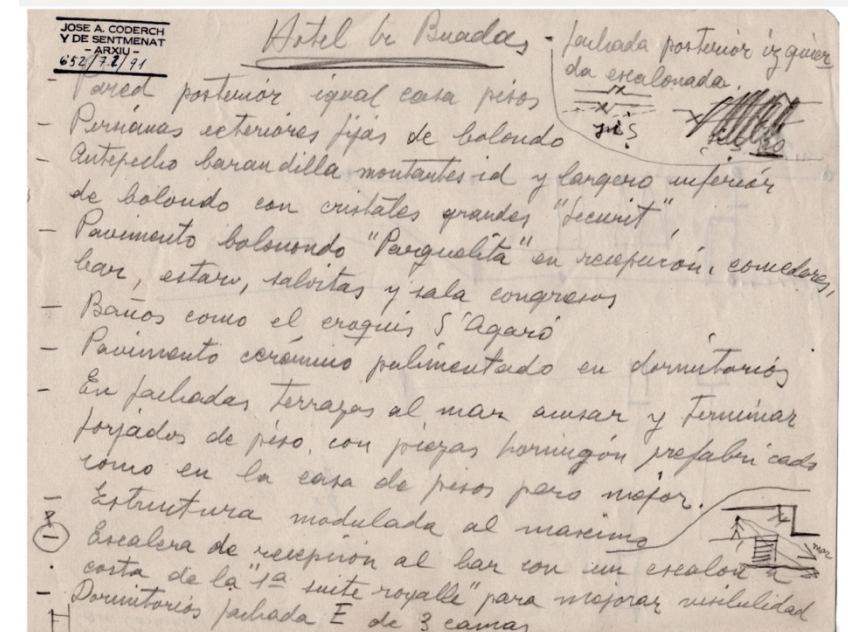 JOSE A. CODERCH
Y DE SENTMENAT
- ARXIU -
652/72/91
Hotel de Buadas
- fachada posterior izquier
da escalonada.
- Pared posterior igual casa pisos
- Persianas exteriores fijas de bolondo
- Antepecho barandilla montantes id y largero inferior
de bolondo con cristales grandes "Securit"
- Pavimento bolonondo "Parquelita" en recepción, comedores,
bar, estar, salvitas y sala congresos
- Baños como el croquis S'Agaró
- Pavimento cerámico pulimentado en dormitorios
- En fachadas terrazas al mar acusar y terminar
forjados de piso, con piezas hormigón prefabricado
como en la casa de pisos pero mejor.
- Estructura modulada al maximo
- Escalera de recepción al bar con un escalon a
costa de la "1ª suite royalle" para mejorar visibilidad
- Dormitorios fachada E de 3 camas
mar